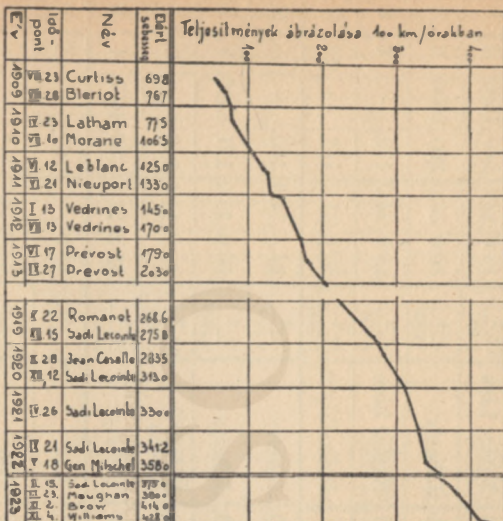 Év Idő-pont Név Elért sebesség Teljesítmények ábrázolása 100 km/órákban
100 200 300 400
1909 VIII.23 Curtiss 698
VIII.28 Bleriot 767
1910 IV.23 Latham 775
VII.10 Morane 1065
1911 VI.12 Leblanc 1250
VI.21 Nieuport 1330
1912 I 13 Vedrines 1450
VII.13 Vedrines 1700
1913 VI 17 Prévost 1790
IX.27 Prevost 2030
1919 X 22 Romanet 2686
XII.15 Sadi Lecointe 2758
1920 X 28 Jean Casalle 2835
XII.12 Sadi Lecointe 3130
1921 IV.26 Sadi Lecointe 3300
1922 IX 21 Sadi Lecointe 3412
V 18 Gen Mitschel 3580
1923 II. 15. Sadi Lecointe 3750
Maughan 3800
XI. 2. Brow 4140
XI. 4. Williams 4280
OS